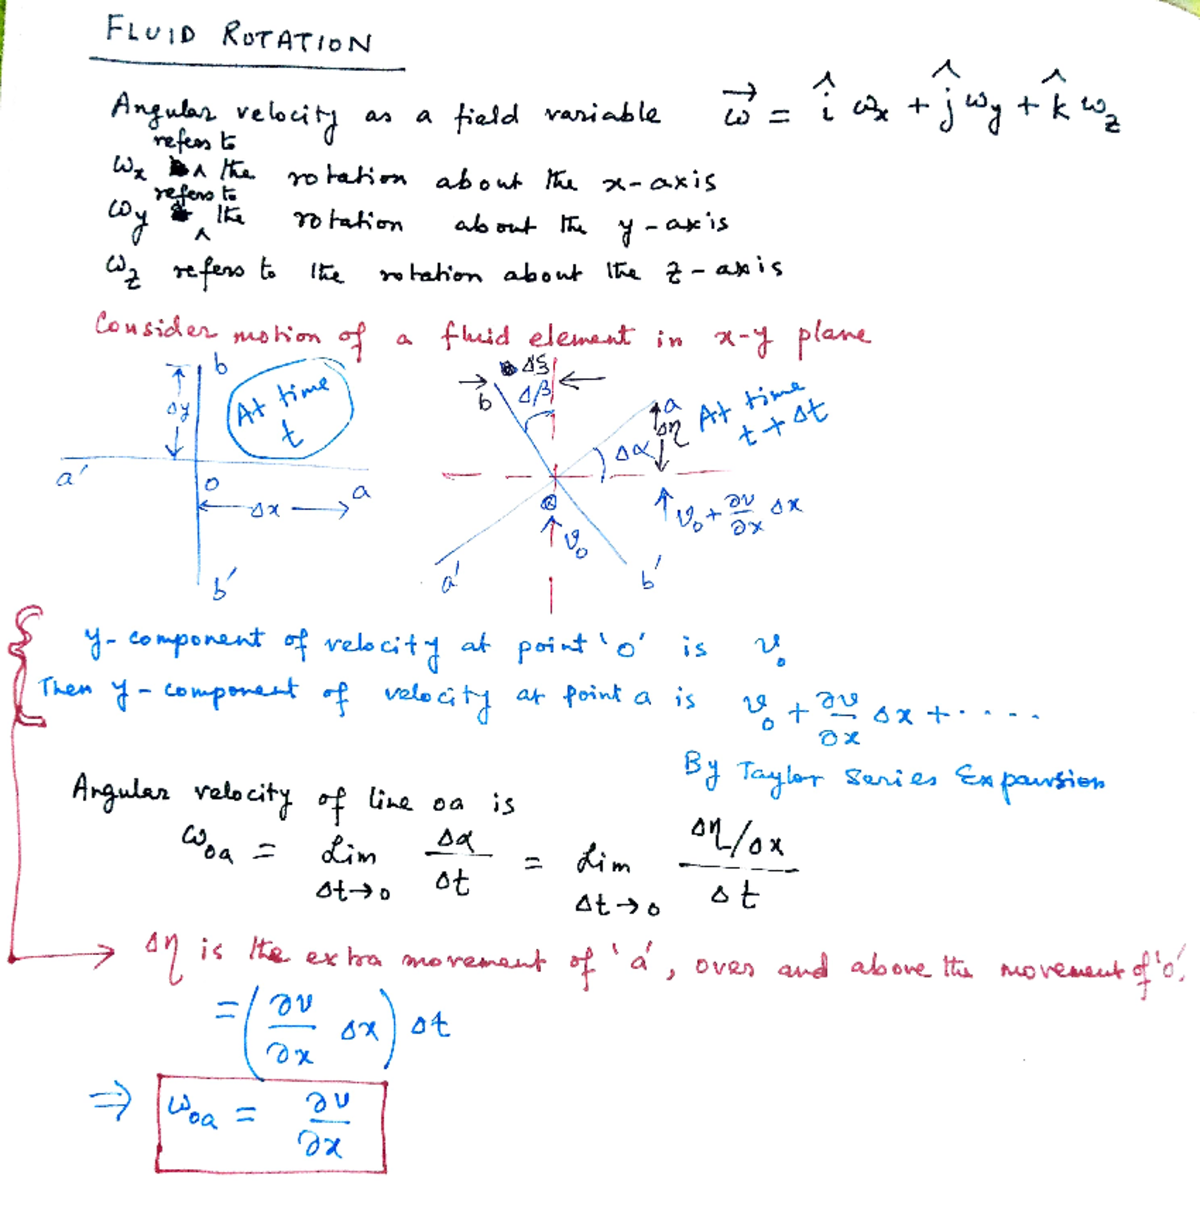 FLUID ROTATION
Angular velocity as a field variable ω⃗ = î ωx + ĵ ωy + k̂ ωz
ωx refers to the rotation about the x-axis
ωy refers to the rotation about the y-axis
ωz refers to the rotation about the z-axis
Consider motion of a fluid element in x-y plane
b
Δy
At time
t
a'
o
a
Δx
b'
Δξ
b
Δβ
a
Δη
At time
t + Δt
Δα
v₀ + ∂v/∂x Δx
v₀
a'
b'
y-component of velocity at point 'o' is v₀
Then y-component of velocity at point a is v₀ + ∂v/∂x Δx + .....
By Taylor Series Expansion
Angular velocity of line oa is
ωoa = Lim Δt→0 Δα/Δt = Lim Δt→0 (Δη/Δx)/Δt
Δη is the extra movement of 'a', over and above the movement of 'o'.
= (∂v/∂x Δx) Δt
⇒ ωoa = ∂v/∂x